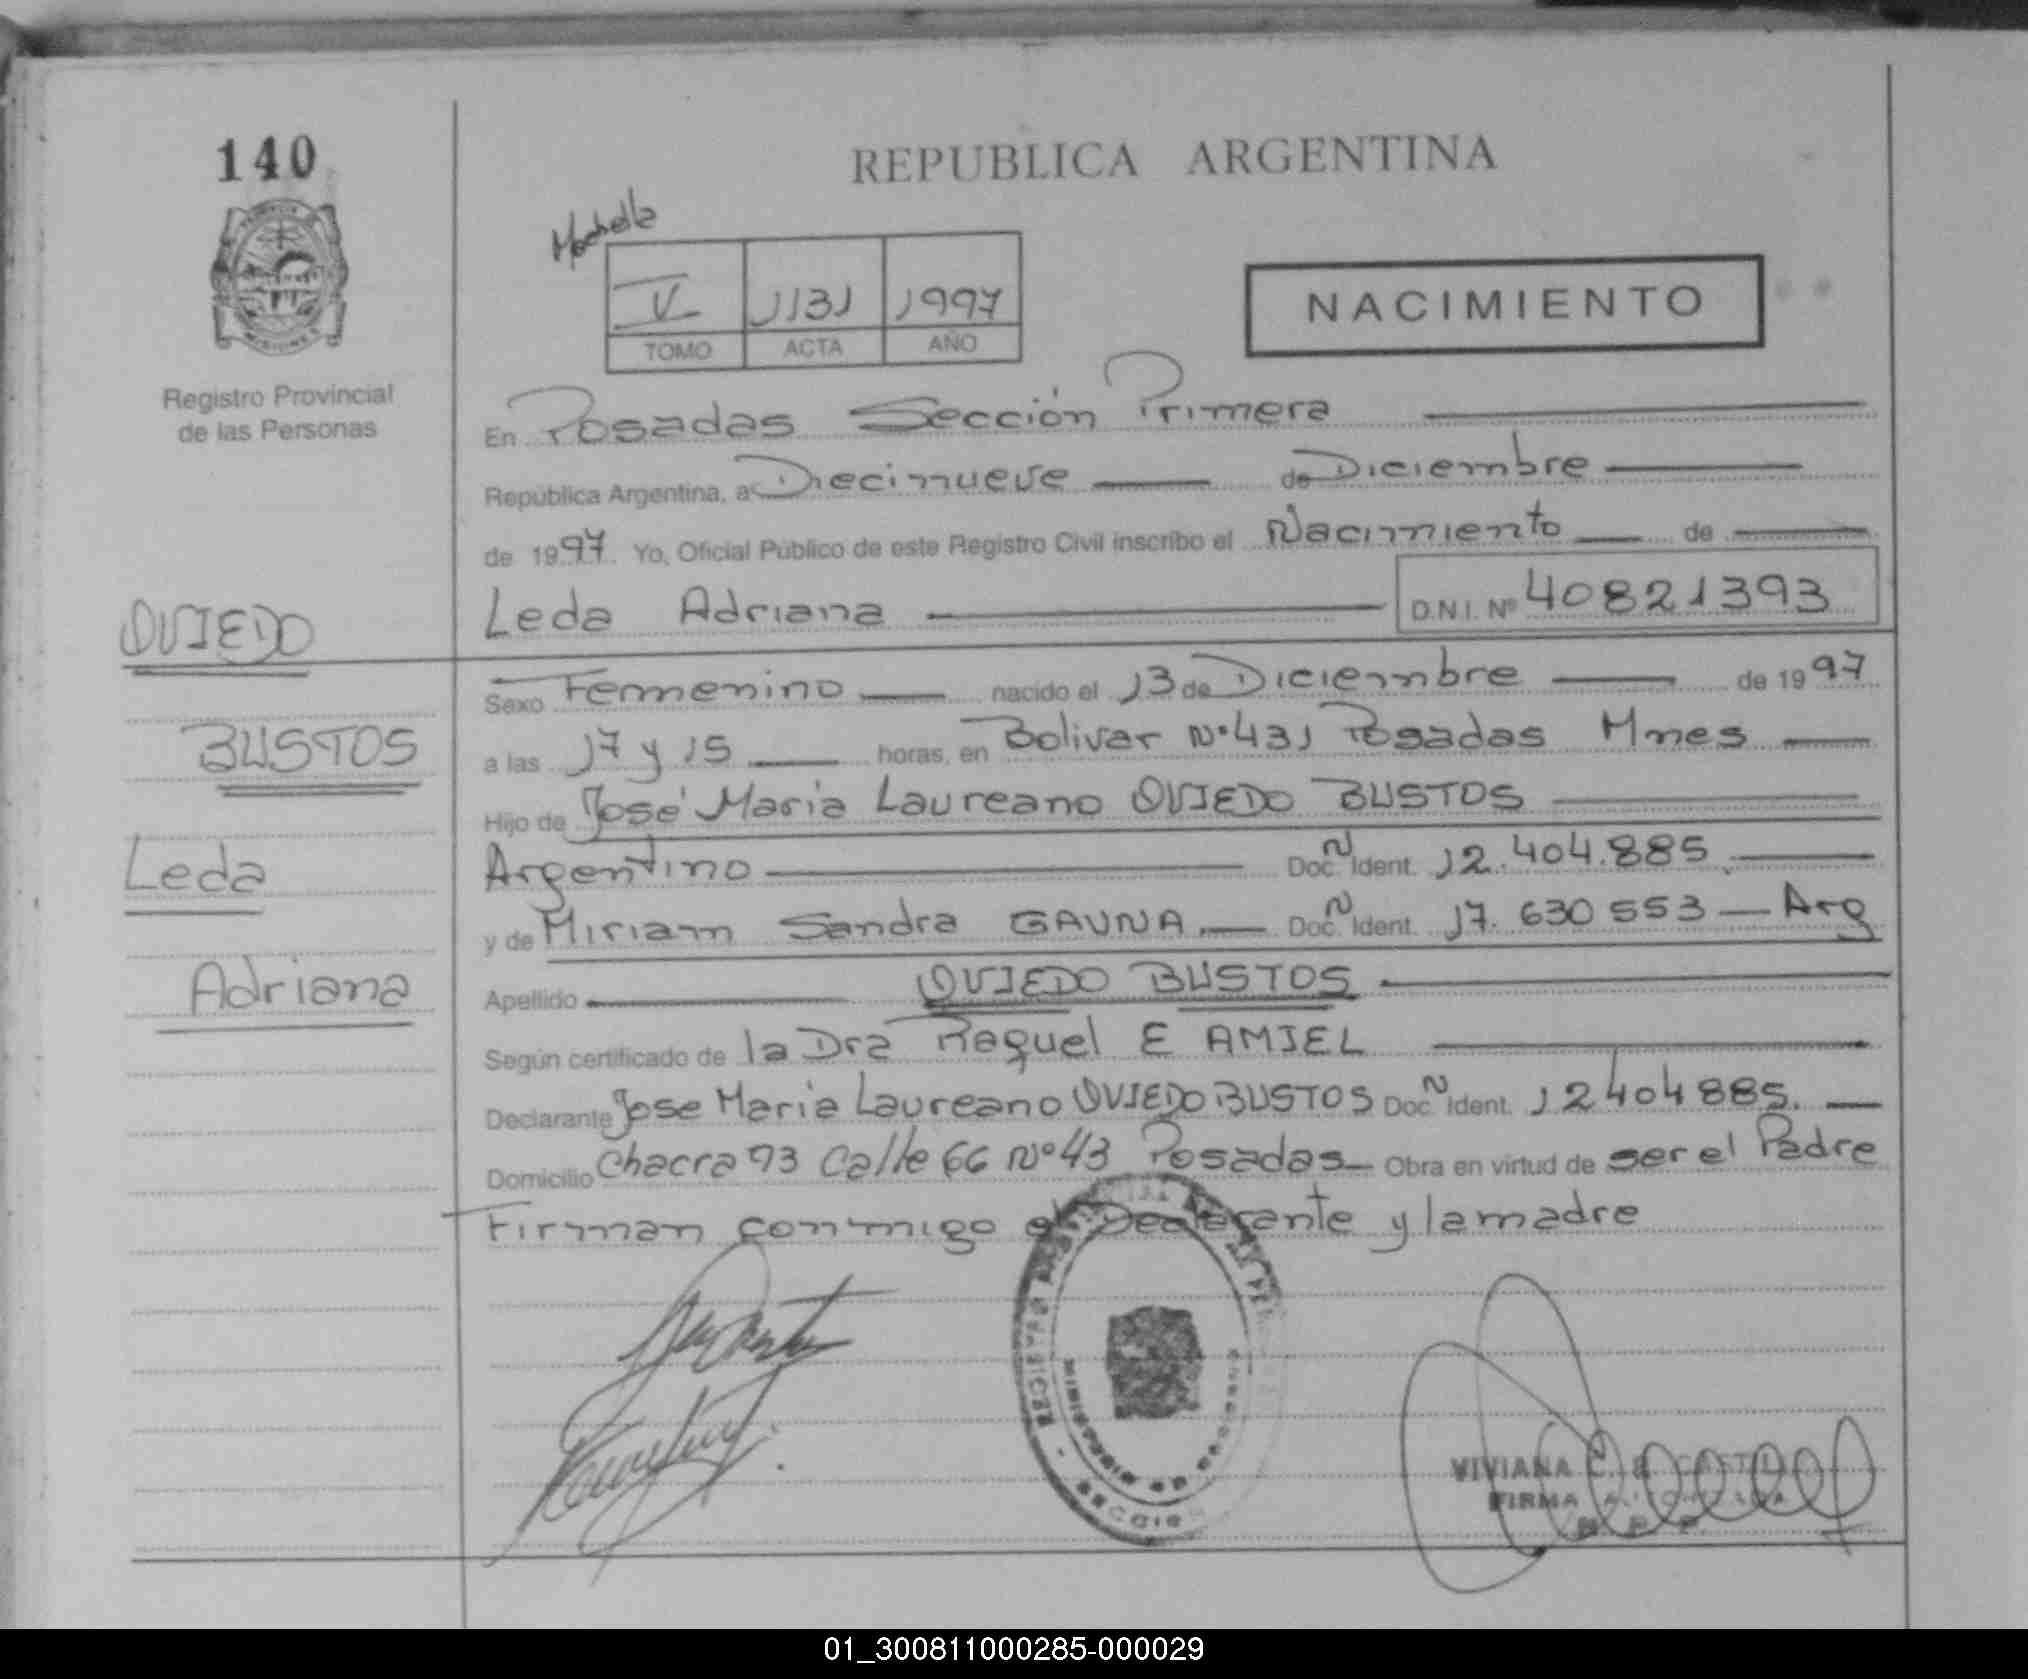 140
REPUBLICA ARGENTINA
V 1131 1997
TOMO ACTA AÑO
NACIMIENTO
Registro Provincial
de las Personas
En Posadas Sección Primera
República Argentina, a Diecinueve de Diciembre
de 1997. Yo, Oficial Público de este Registro Civil inscribo el Nacimiento de
Leda Adriana D.N.I. Nº 40821393
OVIEDO
BUSTOS
Leda
Adriana
Sexo Femenino nacido el 13 de Diciembre de 1997
a las 17 y 15 horas, en Bolivar Nº 431 Posadas Mnes
Hijo de José Maria Laureano OVIEDO BUSTOS
Argentino Doc. N Ident. 12.404.885
y de Miriam Sandra GAUNA Doc. N Ident. 17.630553 Arg
Apellido OVIEDO BUSTOS
Según certificado de la Dra Raquel E AMIEL
Declarante Jose Maria Laureano OVIEDO BUSTOS Doc. N Ident. 12404885.
Domicilio Chacra 93 Calle 66 Nº 43 Posadas Obra en virtud de ser el Padre
Firman conmigo el Declarante y la madre
VIVIANA C.
FIRMA
01_300811000285-000029